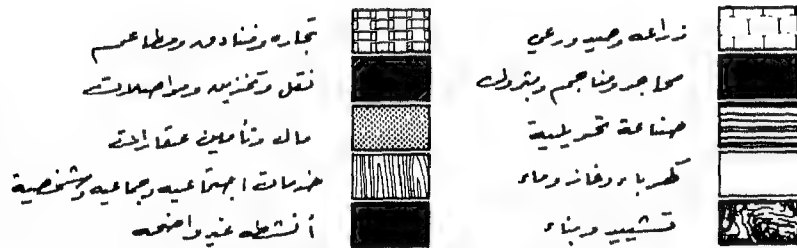 زراعه وصيد ورعي
محاجر ومناجم وبترول
صناعة تحويلية
كهرباء وغاز وماء
تشييد وبناء
تجاره وفنادق ومطاعم
نقل وتخزين ومواصلات
مال وتأمين عقارات
خدمات اجتماعيه وجماعيه وشخصية
أنشطه غير واضحه